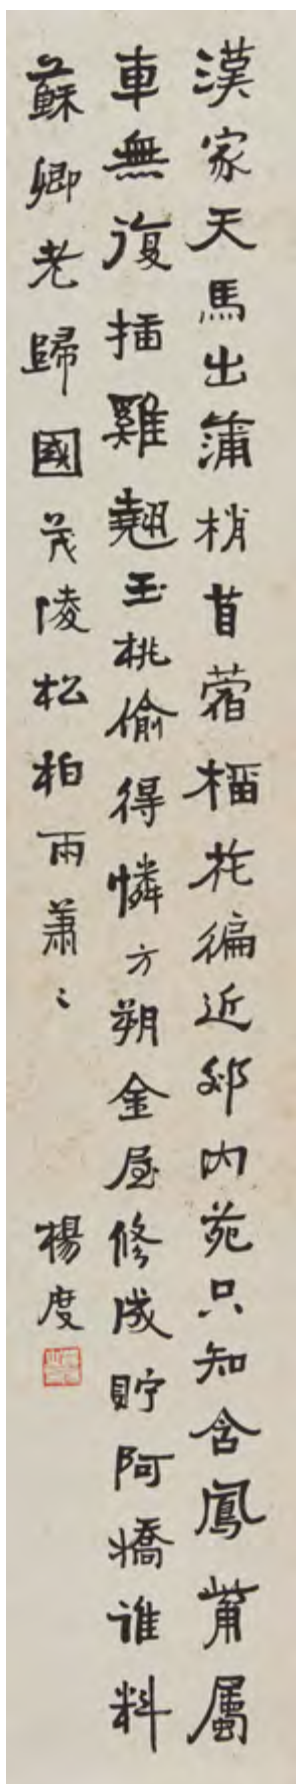 漢家天馬出蒲梢苜蓿榴花徧近郊内苑只知含鳳觜屬
車無復插雞翹玉桃偷得憐方朔金屋修成貯阿嬌誰料
蘇卿老歸國茂陵松柏雨蕭〻
楊度